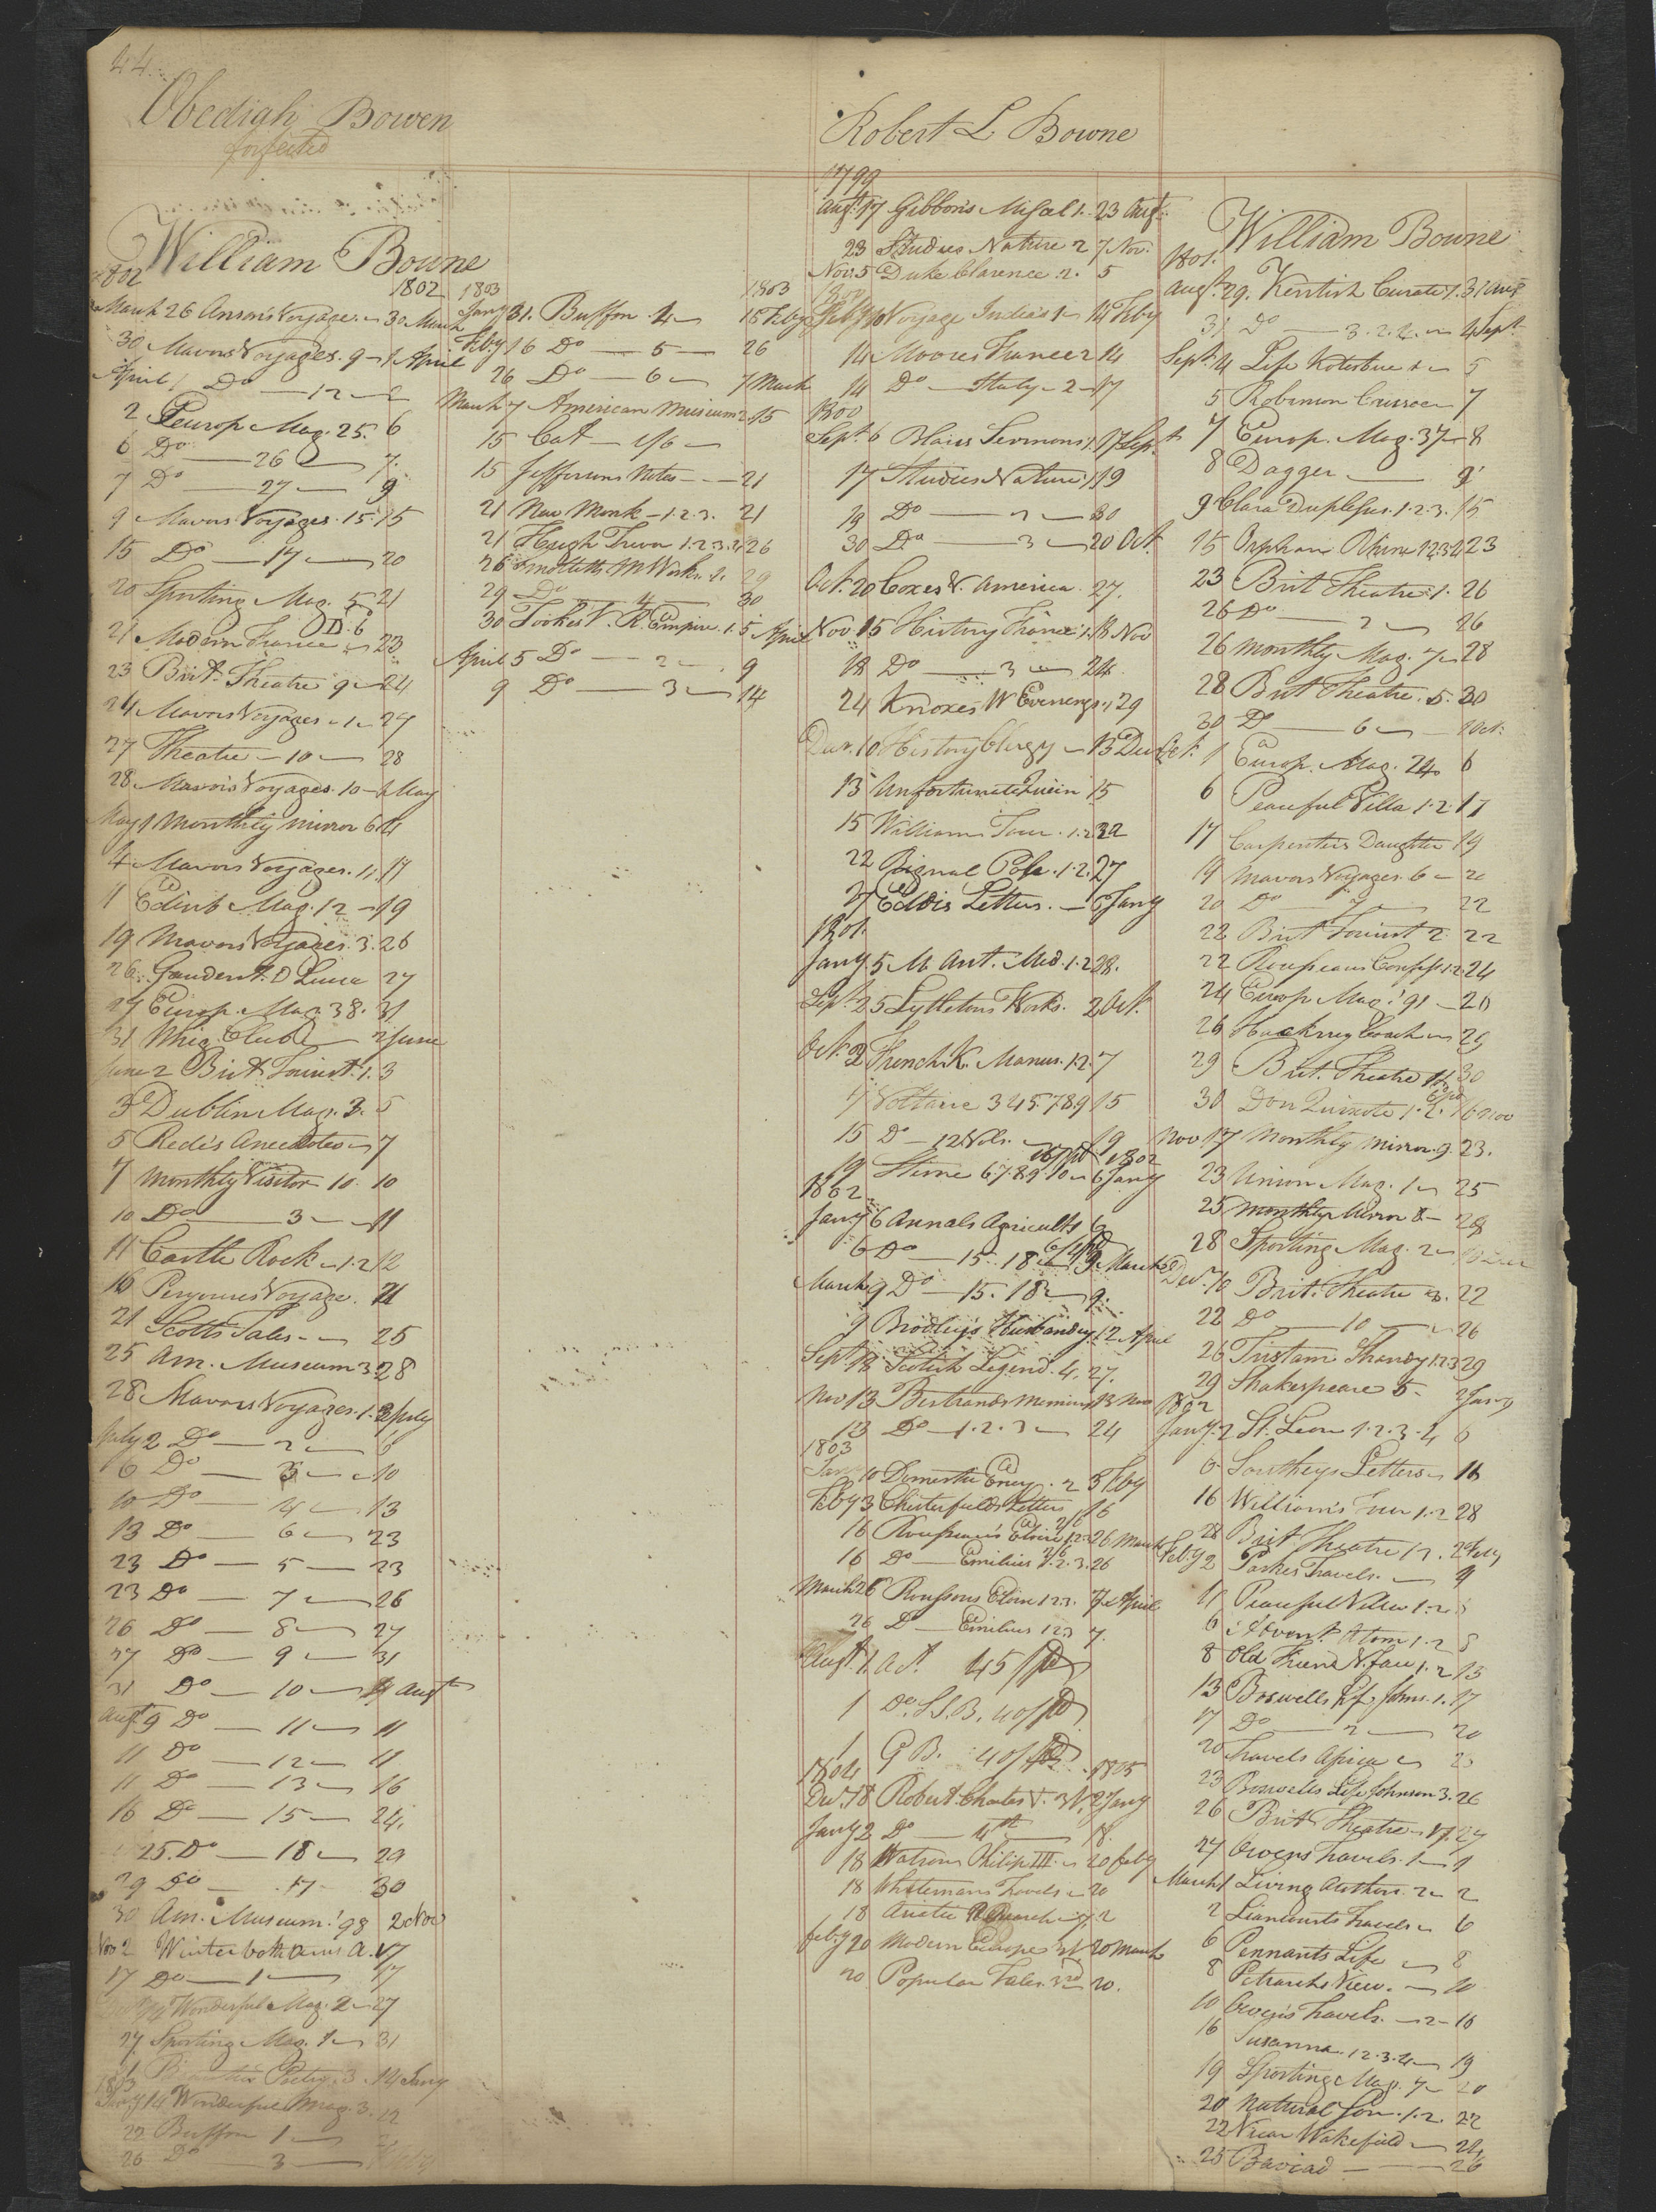 44
Obediah Bowen
forfeited
William Bowne
1802 1802
March 26 Anson's Voyage. 30 March
30 Mavors Voyages. 9 1 April
April 1 Do 12 2
2 Europ Mag. 25. 6
6 Do 26 7.
7 Do 27 9
9 Mavors Voyages. 15. 15
15 Do 17 20
20 Sporting Mag. 5 21
21 Modern France 23
23 Brit. Theatre 9 24
24 Mavors Voyages 1 27
27 Theatre 10 28
28 Mavors Voyages. 10 1 May
May 1 Monthly Mirror 6 4
4 Mavors Voyages. 11. 11
11 Edinb Mag. 12 19
19 Mavors Voyages. 3. 26
26 Gaudent. D Lucca 27
27 Europ. Mag. 38. 31
31 Whig Club 2 June
June 2 Brit Tourist. 1. 3
3 Dublin Mag. 3. 5
5 Rede's Anecdotes 7
7 Monthly Visitor 10. 10
10 Do 3 11
11 Castle Rock 1.2 12
16 Perouses Voyage. 21
21 Scotts Tales 25
25 Am. Museum 3 28
28 Mavors Voyages. 1. 2 July
July 2 Do 2 6
6 Do 3 10
10 Do 4 13
13 Do 6 23
23 Do 5 23
23 Do 7 26
26 Do 8 27
27 Do 9 31
31 Do 10 9 Augt
Augt 9 Do 11 11
11 Do 12 11
11 Do 13 16
16 Do 15 24.
25. Do 18 29
29 Do 17 30
30 Am. Museum. '98 2 Nov
Nov 2 Winterbothams A. 17
17 Do 1 17
Wonderful Mag. 2 27
27 Sporting Mag. 1 31
Poetry. 3. 14 Jany
1803
Jany 14 Wonderful Mag. 3. 22
22 Buffon 1
26 Do 3
1803 1803
Jany 31. Buffon 4 16 Feby
Feby 16 Do 5 26
26 Do 6 7 March
March 7 American Museum 2. 15
15 Cat 1/6
15 Jeffersons Notes 21
21 New Monk 1.2.3. 21
21 Hugh Trevor 1.2.3.4 26
26 Smolletts M Works. 29
29 Do 4 30
30 Tookes V. R. Empire. 1. 5 April
April 5 Do 2 9
9 Do 3 14
Robert L Bowne
1799
Augt. 17 Gibbons Miscel 1. 23 Augt.
23 Studies Nature 2 7 Nov.
Nov. 5 Duke Clarence. 2. 5
1800
Feby 10 Voyage Indias 1 14 Feby
14 Moores France 2 14
14 Do Italy 2 17
1800
Sept. 6 Blairs Sermons 1. 17 Sept.
17 Studies Nature 1 19
19 Do 2 30
30 Do 3 20 Oct.
Oct. 20 Coxes V. America. 27.
Nov. 15 History France 1. 18 Nov
18 Do 3 24.
24 Knoxes W Evenings 1 29
Decr. 10 History Clergy 13 Decr
13 Unfortunate Queen 15
15 Williams Tour. 1.2 22
22 Pignal Pole. 1.2. 27
27 Eddis Letters. 6 Jany
1801.
Jany. 5 M. Ant. Med. 1.2 28.
Sept. 25 Lytletons Works. 2 Oct.
Oct. 2 French K. Manus. 1.2. 7
7 Voltaire 3 4 5. 7 8 9 15
15 Do 12 Vols. 19
19 Sterne 6.7.8.9.10 1802 6 Jany
1802
Jany 6 Annals Agricult 6
6 Do 15. 18 9 March
March 9 Do 15. 18 9.
9 Brodleys Husbandry. 12 April
Sept. 18 Scotish Legend. 4. 27.
Nov 13 Bertrands Memoirs 13 Nov
13 Do 1.2.3 24
1803
Jany 10 Domestic Ency. 2 3 Feby
Feby 3 Chesterfields Letters 16
16 Rousseau's Eloisa 1.2.3 26 March
16 Do Emilius 1.2.3. 26
March 26 Roussous Eloisa 1.2.3. 7 April
26 Do Emilius 1 2 3 7.
Augt. 1 act. 45/pd
1 Do. S.S.B. 40/pd
1 G B. 40/pd
1804 1805
Dec. 18 Robert. Charles V. 3 V. 2 Jany
Jany 2 Do 4th 18.
18 Watsons Philip III. 20 Feby
18 Whitemans Travels 20
18 Asiatic Research 7, 2
Feby 20 Modern Europe 20 March
20 Popular Tales 3d 20.
William Bowne
1801.
Augt. 29. Kentish Curate 1. 31 Augt
31 Do 3.2.4. 4 Sept.
Sept. 4 Life Kotzebue 5
5 Robinson Crusoe 7
7 Europ. Mag. 37 8
8 Dagger 9
9 Clara Duplessis. 1.2.3. 15
15 Orphan Rhine 1 2 3 4 23
23 Brit Theatre 1. 26
26 Do 2 26
26 Monthly Mag. 7 28
28 Brit Theatre. 5. 30
30 Do 6 1 Oct.
Oct. 1 Europ. Mag. 24 6
6 Peaceful Villa 1.2 17
17 Carpenters Daughter 19
19 Mavors Voyages. 6 20
20 Do 7 22
22 Brit Tourist 2. 22
22 Rousseaus Confess 1.2 24
24 Europ Mag. '91 26
26 Hackney Coach 29
29 Brit. Theatre 11. 30
30 Don Quixote 1.2. 16 Nov
Nov 17 Monthly Mirror. 9. 23.
23 Union Mag. 1 25
25 Monthly Mirror 8 28
28 Sporting Mag. 2
Dec. 10 Brit. Theatre 3. 22
22 Do 10 26
26 Tristam Shandy 1.2.3 29
29 Shakespeare 5. 2 Jany
1802
Jany. 2 St. Leon 1.2.3.4 6
6 Southeys Letters 16
16 William's Tour 1.2 28
28 Brit. Theatre 12. 2 Feby
Feby 2 Parkes Travels. 4
4 Peaceful Villa 1.2
6 Advent. Atom 1.2 8
8 Old Friend N. face 1.2 13
13 Boswells Lf. Johns. 1. 17
17 Do 2 20
20 Travels Africa 23
23 Boswells Life Johnson 3. 26
26 Brit Theatre 17. 27
27 Owens Travels. 1 1
March 1 Living Authors. 2 2
2 Liancourts Travels 6
6 Pennants Life 8
8 Petrarchs View. 10
10 Owen's Travels. 2 16
16 Susanna. 1 2.3.4 19
19 Sporting Mag. 7 20
20 Natural Son. 1.2. 22
22 Vicar Wakefield 24
25 Baviad 26